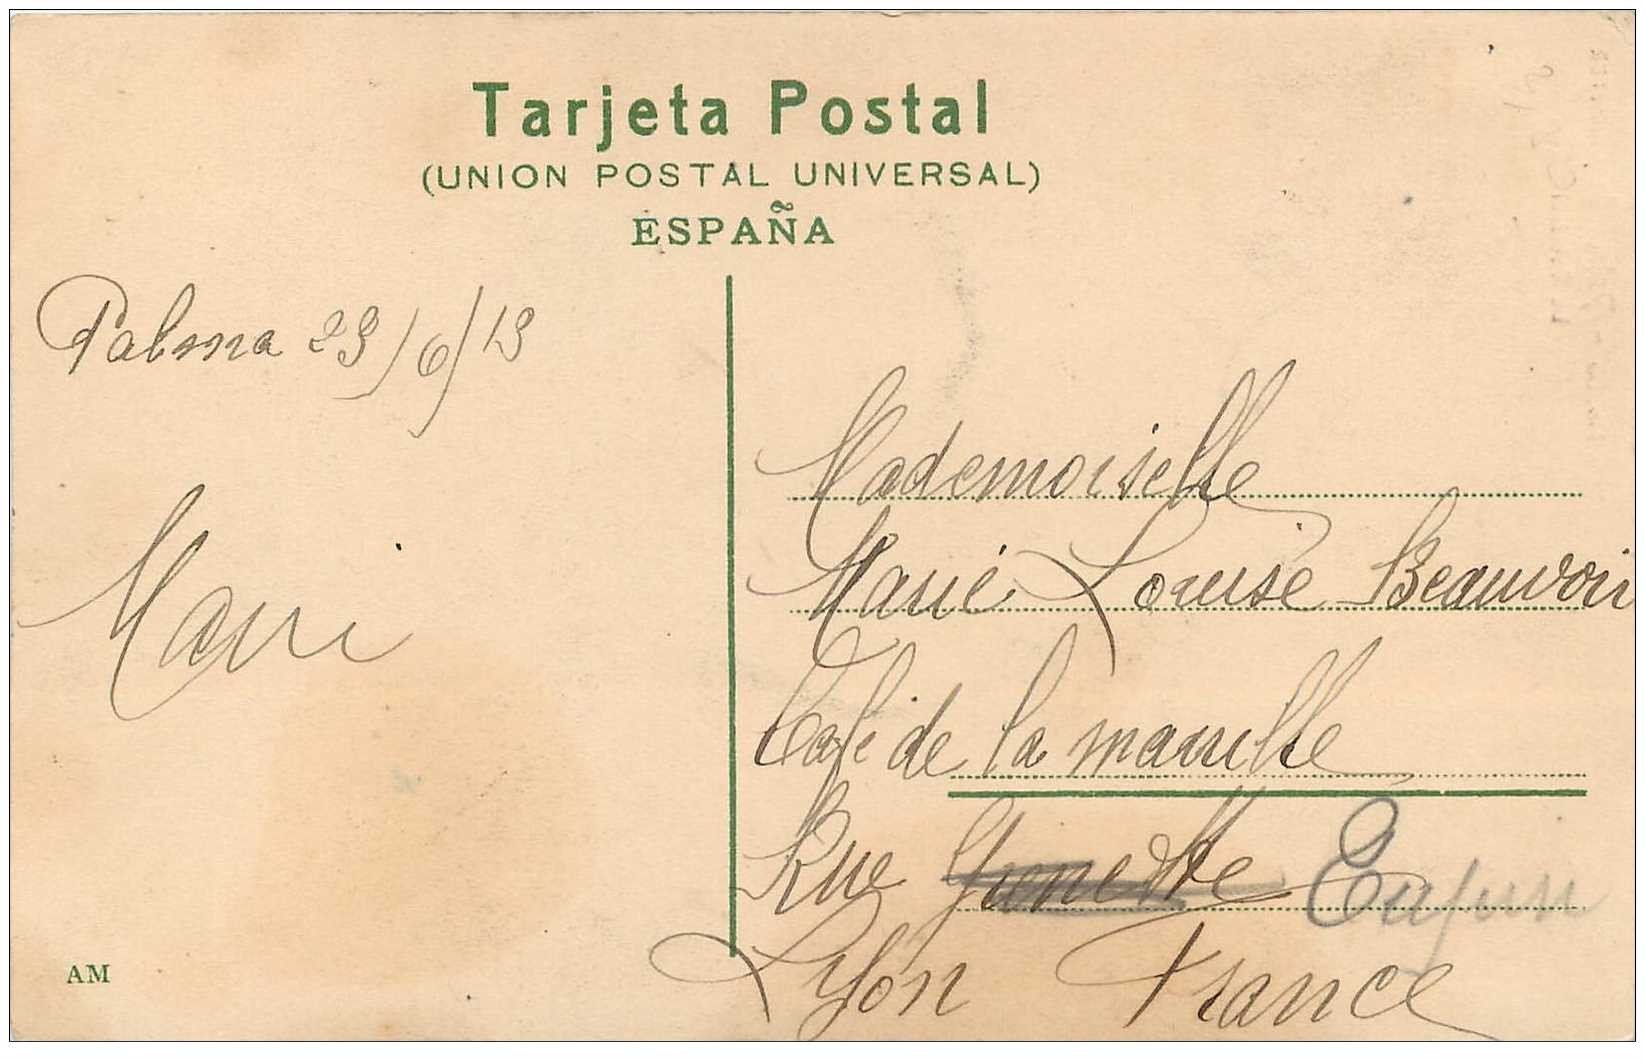 Tarjeta Postal
(UNION POSTAL UNIVERSAL)
ESPAÑA
Palma 23/6/13
Mari
Mademoiselle
Marie Louise Beauvoir
Café de la
Rue
Lyon France
AM